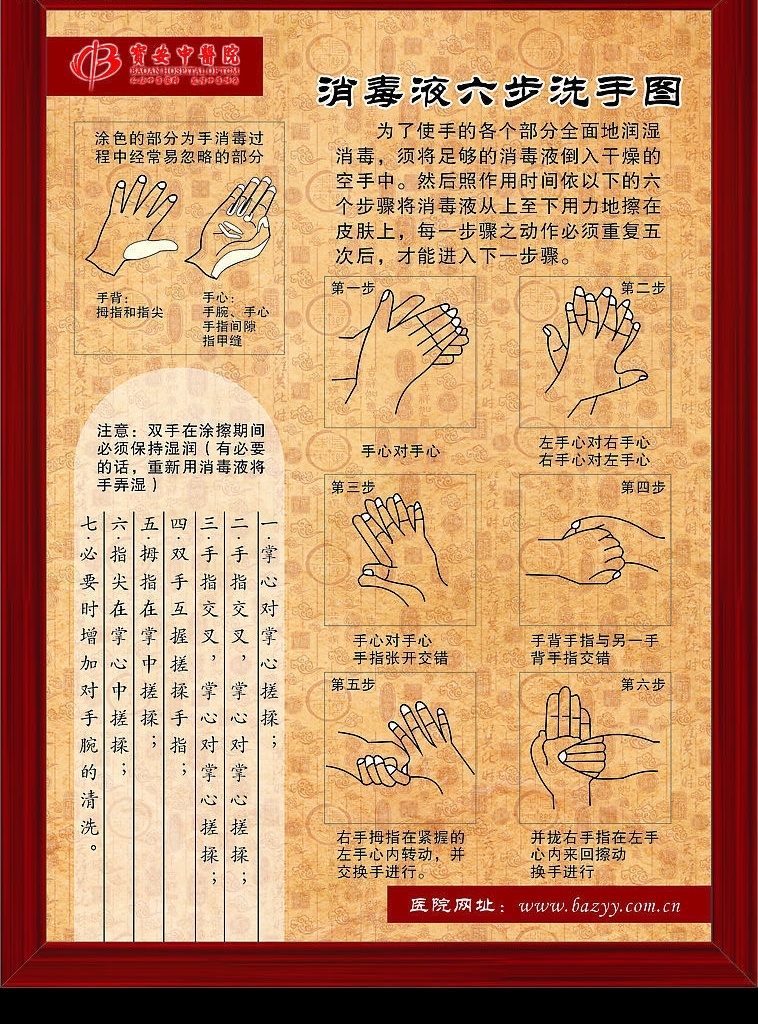 寳安中醫院
BAOAN HOSPITAL OF TCM
消毒液六步洗手图
涂色的部分为手消毒过
程中经常易忽略的部分
手背：
拇指和指尖
手心：
手腕、手心
手指间隙
指甲缝
为了使手的各个部分全面地润湿
消毒，须将足够的消毒液倒入干燥的
空手中。然后照作用时间依以下的六
个步骤将消毒液从上至下用力地擦在
皮肤上，每一步骤之动作必须重复五
次后，才能进入下一步骤。
第一步
手心对手心
第二步
左手心对右手心
右手心对左手心
第三步
手心对手心
手指张开交错
第四步
手背手指与另一手
背手指交错
第五步
右手拇指在紧握的
左手心内转动，并
交换手进行。
第六步
并拢右手指在左手
心内来回擦动
换手进行
注意：双手在涂擦期间
必须保持湿润（有必要
的话，重新用消毒液将
手弄湿）
一·掌心对掌心搓揉；
二·手指交叉，掌心对掌心搓揉；
三·手指交叉，掌心对掌心搓揉；
四·双手互握搓揉手指；
五·拇指在掌中搓揉；
六·指尖在掌心中搓揉；
七·必要时增加对手腕的清洗。
医院网址：www.bazyy.com.cn